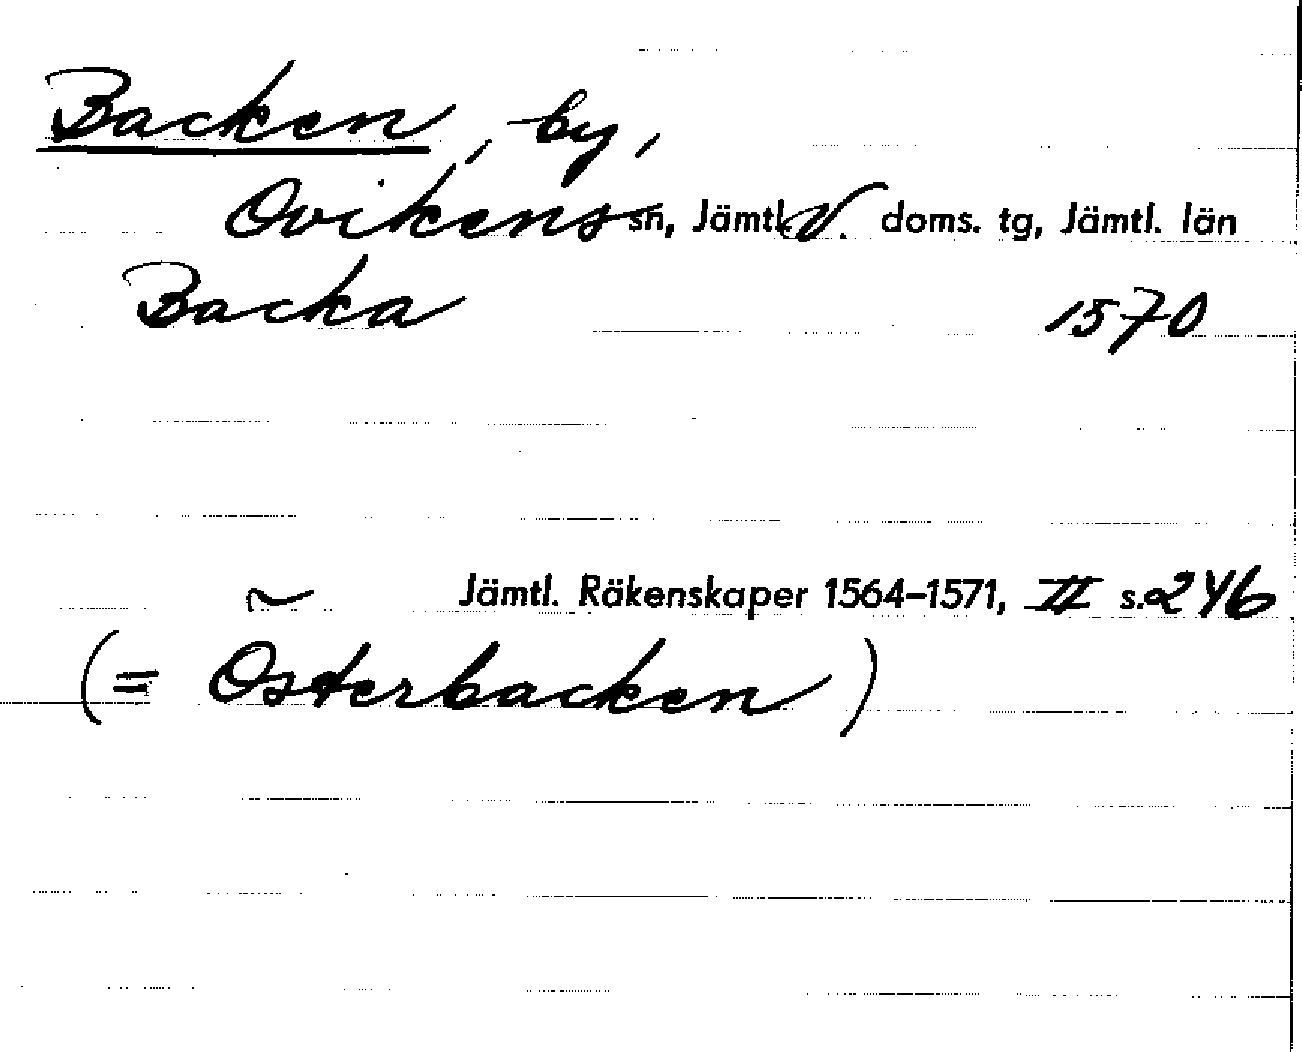 Backen, by,
Ovikens sn, Jämtl. V. doms. tg, Jämtl. län
Backa 1570
~ Jämtl. Räkenskaper 1564–1571, II s. 246
(= Österbacken)